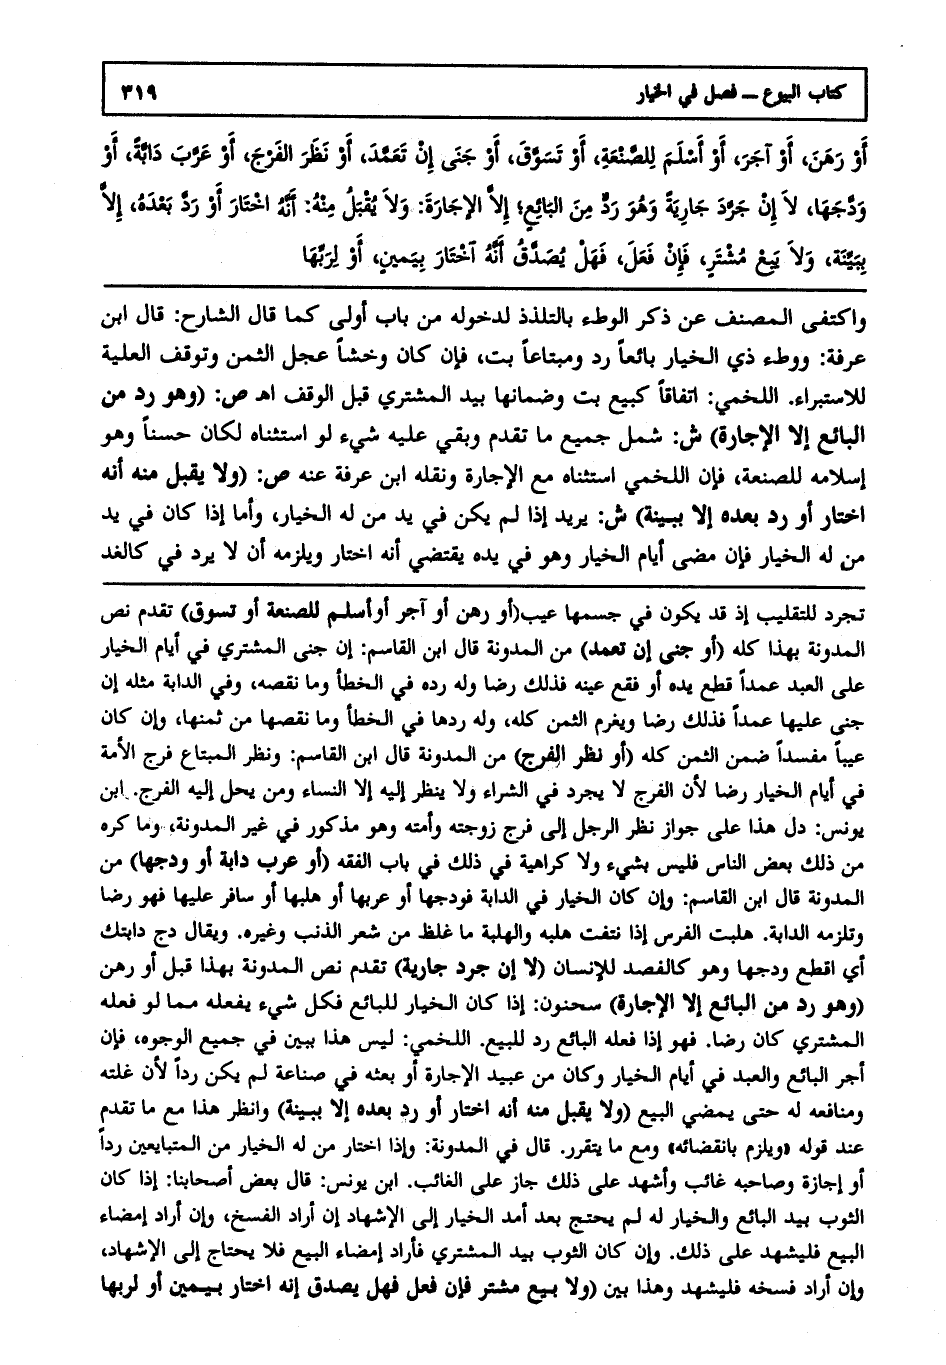 كتاب البيوع ــ فصل في الخيار ٣١٩
أَوْ رَهَنَ، أَوْ آجَرَ، أَوْ أَسْلَمَ لِلصَّنْعَةِ، أَوْ تَسَوَّقَ، أَوْ جَنَى إِنْ تَعَمَّدَ، أَوْ نَظَرَ الفَرْجَ، أَوْ عَرَّبَ دَابَّةً، أَوْ
وَدَّجَهَا، لاَ إِنْ جَرَّدَ جَارِيَةً وَهُوَ رَدٌّ مِنَ البَائِعِ؛ إِلاَّ الإِجَارَةَ: وَلاَ يُقْبَلُ مِنْهُ: أَنَّهُ اخْتَارَ أَوْ رَدَّ بَعْدَهُ، إِلاَّ
بِبَيِّنَة، وَلاَ يَبِعْ مُشْتَرٍ، فَإِنْ فَعَلَ، فَهَلْ يُصَدَّقُ أَنَّهُ آخْتَارَ بِيَمينٍ، أَوْ لِرَبِّهَا
واكتفى المصنف عن ذكر الوطء بالتلذذ لدخوله من باب أولى كما قال الشارح: قال ابن
عرفة: ووطء ذي الخيار بائعاً رد ومبتاعاً بت، فإن كان وخشاً عجل الثمن وتوقف العلية
للاستبراء. اللخمي: اتفاقاً كبيع بت وضمانها بيد المشتري قبل الوقف اهـ ص: (وهو رد من
البائع إلا الإجارة) ش: شمل جميع ما تقدم وبقي عليه شيء لو استثناه لكان حسناً وهو
إسلامه للصنعة، فإن اللخمي استثناه مع الإجارة ونقله ابن عرفة عنه ص: (ولا يقبل منه أنه
اختار أو رد بعده إلا ببينة) ش: يريد إذا لم يكن في يد من له الخيار، وأما إذا كان في يد
من له الخيار فإن مضى أيام الخيار وهو في يده يقتضي أنه اختار ويلزمه أن لا يرد في كالغد
تجرد للتقليب إذ قد يكون في جسمها عيب(أو رهن أو آجر أوأسلم للصنعة أو تسوق) تقدم نص
المدونة بهذا كله (أو جنى إن تعمد) من المدونة قال ابن القاسم: إن جنى المشتري في أيام الخيار
على العبد عمداً قطع يده أو فقع عينه فذلك رضا وله رده في الخطأ وما نقصه، وفي الدابة مثله إن
جنى عليها عمداً فذلك رضا ويغرم الثمن كله، وله ردها في الخطأ وما نقصها من ثمنها، وإن كان
عيباً مفسداً ضمن الثمن كله (أو نظر الفرج) من المدونة قال ابن القاسم: ونظر المبتاع فرج الأمة
في أيام الخيار رضا لأن الفرج لا يجرد في الشراء ولا ينظر إليه إلا النساء ومن يحل إليه الفرج. ابن
يونس: دل هذا على جواز نظر الرجل إلى فرج زوجته وأمته وهو مذكور في غير المدونة، وما كره
من ذلك بعض الناس فليس بشيء ولا كراهية في ذلك في باب الفقه (أو عرب دابة أو ودجها) من
المدونة قال ابن القاسم: وإن كان الخيار في الدابة فودجها أو عربها أو هلبها أو سافر عليها فهو رضا
وتلزمه الدابة. هلبت الفرس إذا نتفت هلبه والهلبة ما غلظ من شعر الذنب وغيره. ويقال دج دابتك
أي اقطع ودجها وهو كالفصد للإنسان (لا إن جرد جارية) تقدم نص المدونة بهذا قبل أو رهن
(وهو رد من البائع إلا الإجارة) سحنون: إذا كان الخيار للبائع فكل شيء يفعله مما لو فعله
المشتري كان رضا. فهو إذا فعله البائع رد للبيع. اللخمي: ليس هذا ببين في جميع الوجوه، فإن
أجر البائع والعبد في أيام الخيار وكان من عبيد الإجارة أو بعثه في صناعة لم يكن رداً لأن غلته
ومنافعه له حتى يمضي البيع (ولا يقبل منه أنه اختار أو رد بعده إلا ببينة) وانظر هذا مع ما تقدم
عند قوله «ويلزم بانقضائه» ومع ما يتقرر. قال في المدونة: وإذا اختار من له الخيار من المتبايعين رداً
أو إجازة وصاحبه غائب وأشهد على ذلك جاز على الغائب. ابن يونس: قال بعض أصحابنا: إذا كان
الثوب بيد البائع والخيار له لم يحتج بعد أمد الخيار إلى الإشهاد إن أراد الفسخ، وإن أراد إمضاء
البيع فليشهد على ذلك. وإن كان الثوب بيد المشتري فأراد إمضاء البيع فلا يحتاج إلى الإشهاد،
وإن أراد فسخه فليشهد وهذا بين (ولا بيع مشتر فإن فعل فهل يصدق إنه اختار بيمين أو لربها